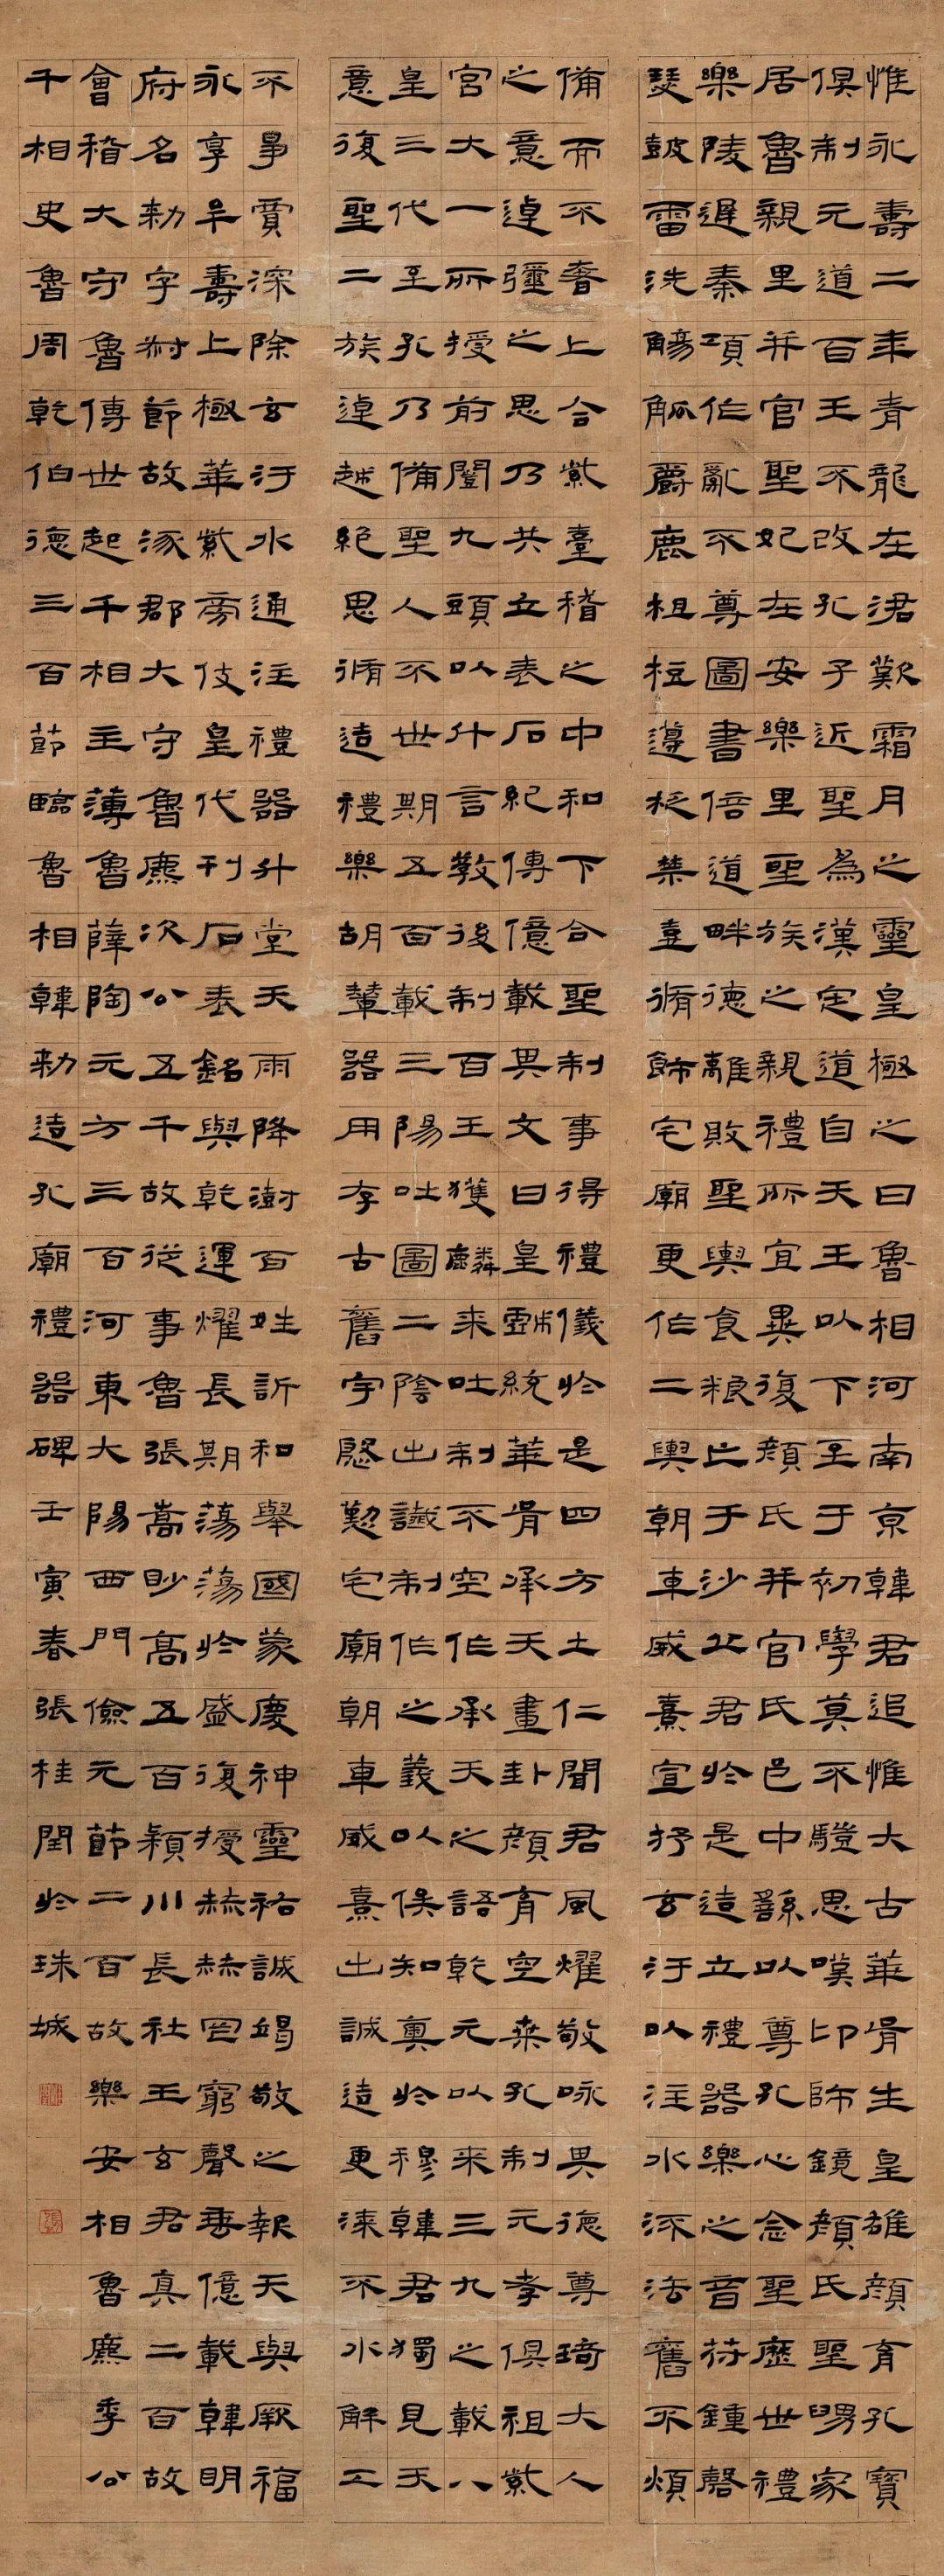 惟永壽二年青龍在涒歎霜月之靈皇極之日魯相河南京韓君追惟大古華胥生皇雄顏育孔寶
俱制元道百王不改孔子近聖為漢定道自天王以下至于初學莫不驥思嘆卬師鏡顏氏聖舅家
居魯親里并官聖妃在安樂里聖族之親禮所宜異復顏氏并官氏邑中繇以尊孔心念聖歷世禮
樂陵遲秦項作亂不尊圖書倍道畔德離敗聖輿食粮亡于沙丘君於是造立禮器樂之音苻鍾磬
瑟鼓雷洗觴觚爵鹿柤梪籩柉禁壺脩飾宅廟更作二輿朝車威熹宣抒玄汙以注水流法舊不煩
備而不奢上合紫臺稽之中和下合聖制事得禮儀於是四方士仁聞君風燿敬咏其德尊琦大人
之意逴彌之思乃共立表石紀傳億載其文曰皇戲統華胥承天畫卦顏育空桑孔制元孝俱祖紫
宮大一所授前闓九頭以什言教後制百王獲麟來吐制不空作承天之語乾元以來三九之載八
皇三代至孔乃備聖人不世期五百載三陽吐圖二陰出讖制作之義以俟知奧於穆韓君獨見天
意復聖二族逴越絕思脩造禮樂胡輦器用存古舊宇慇懃宅廟朝車威熹出誠造更漆不水解工
不爭賈深除玄汙水通注禮器升堂天雨降澍百姓訢和舉國蒙慶神靈祐誠竭敬之報天與厥福
永享牟壽上極華紫旁伎皇代刊石表銘與乾運燿長期蕩蕩於盛復授赫赫罔窮聲垂億載韓明
府名勑字叔節故涿郡大守魯麃次公五千故從事魯張嵩眇高五百潁川長社王玄君真二百故
會稽大守魯傅世起千相主薄魯薛陶元方三百河東大陽西門儉元節二百故樂安相魯麃季公
千相史魯周乾伯德三百節臨魯相韓勑造孔廟禮器碑壬寅春張桂閏於珠城